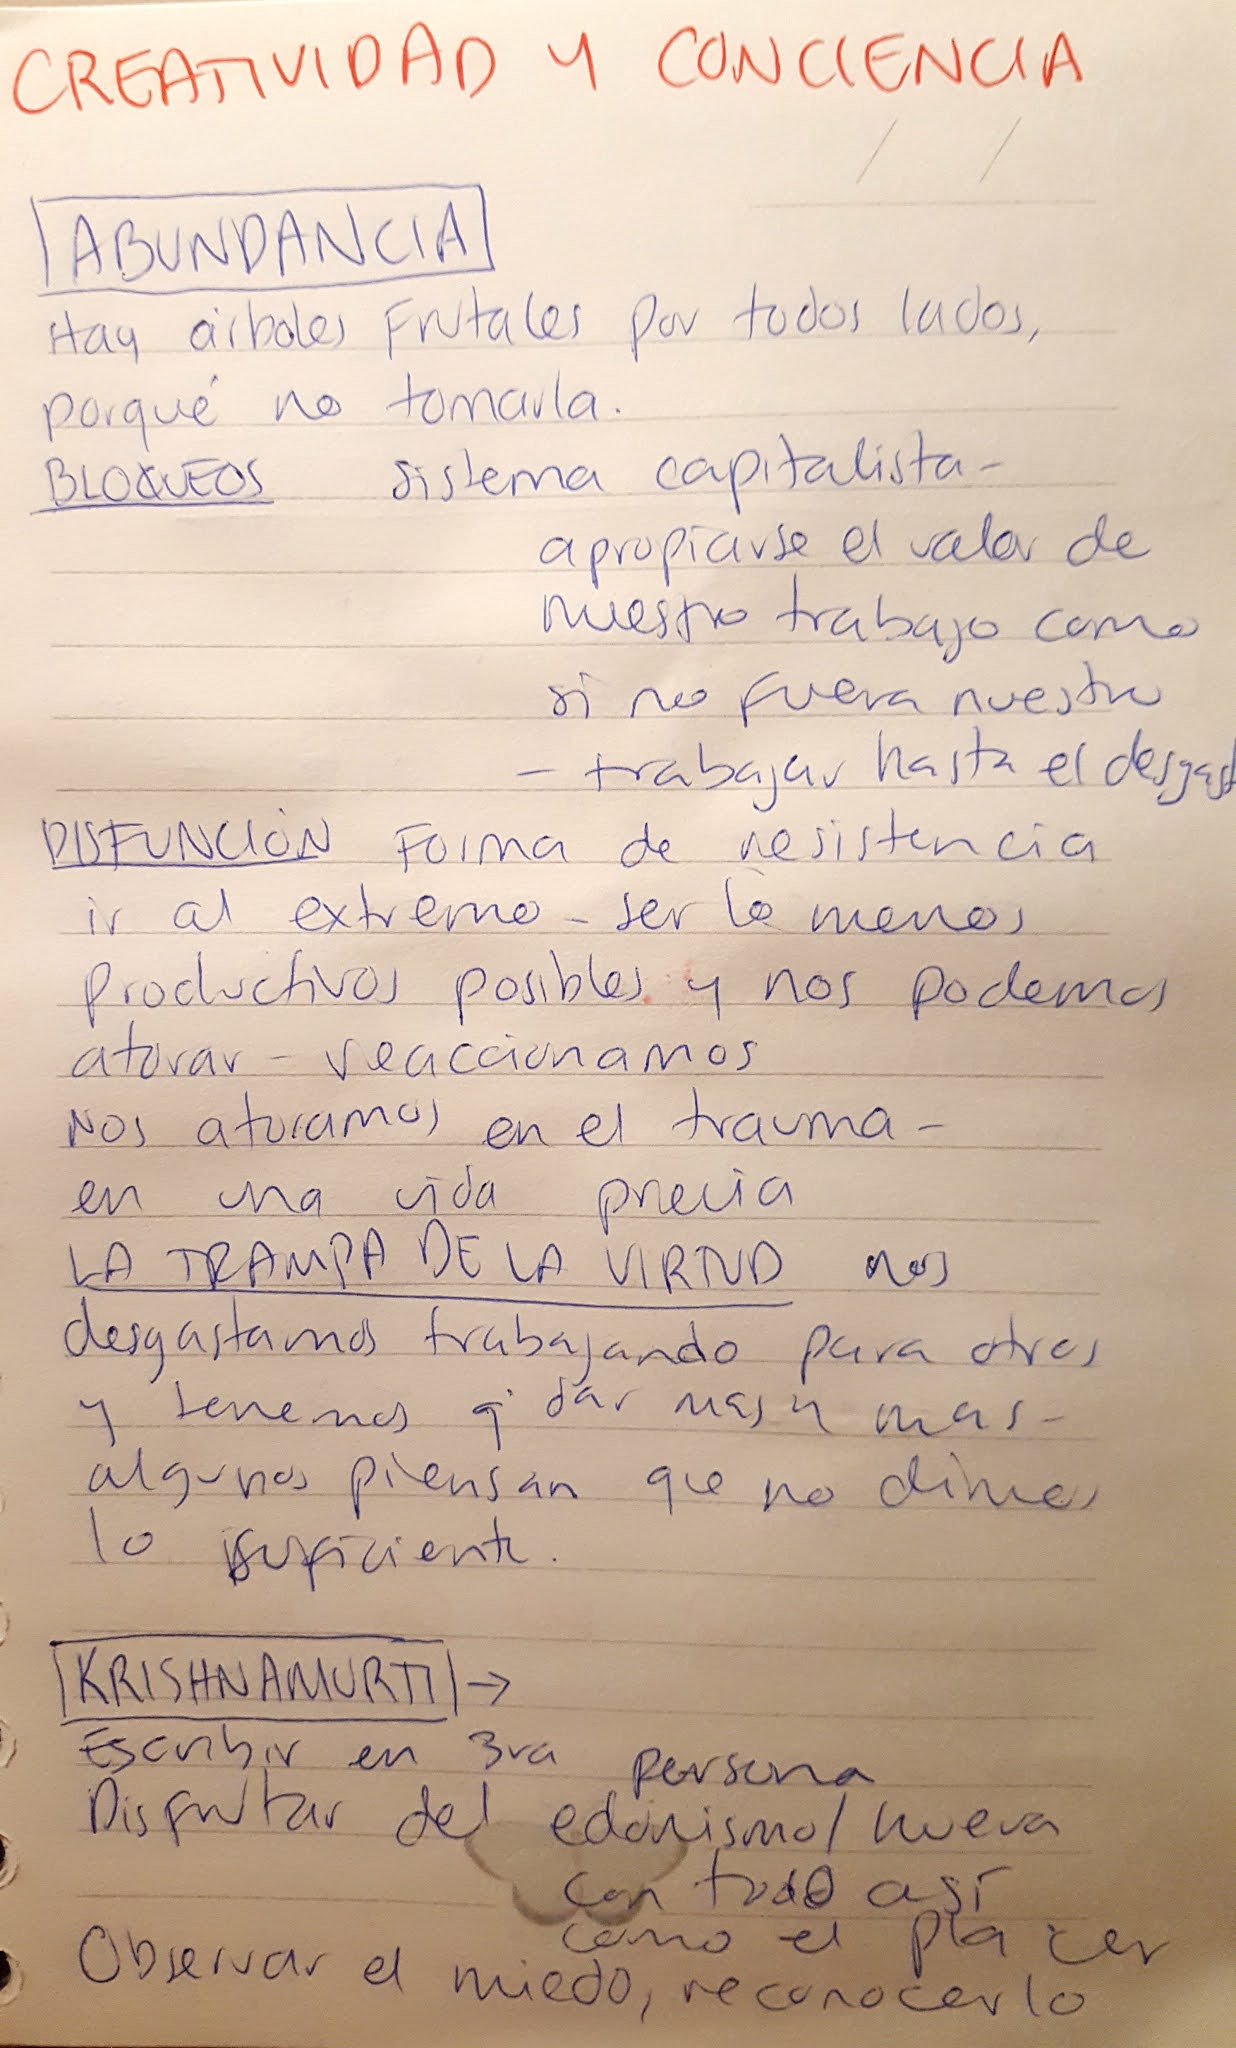 CREATIVIDAD Y CONCIENCIA
/ /
ABUNDANCIA
Hay árboles frutales por todos lados,
porqué no tomarla.
BLOQUEOS sistema capitalista -
apropiarse el valor de
nuestro trabajo como
si no fuera nuestro
- trabajar hasta el desgast
DISFUNCIÓN Forma de resistencia
ir al extremo - ser lo menos
productivos posibles y nos podemos
atorar - reaccionamos
Nos atoramos en el trauma -
en una vida previa
LA TRAMPA DE LA VIRTUD nos
desgastamos trabajando para otros
y tenemos q' dar mas y mas -
algunos piensan que no dimos
lo suficiente.
KRISHNAMURTI →
Escribir en 3ra persona
Disfrutar del edonismo/ nueva
con todo así
como el placer
Observar el miedo, reconocerlo